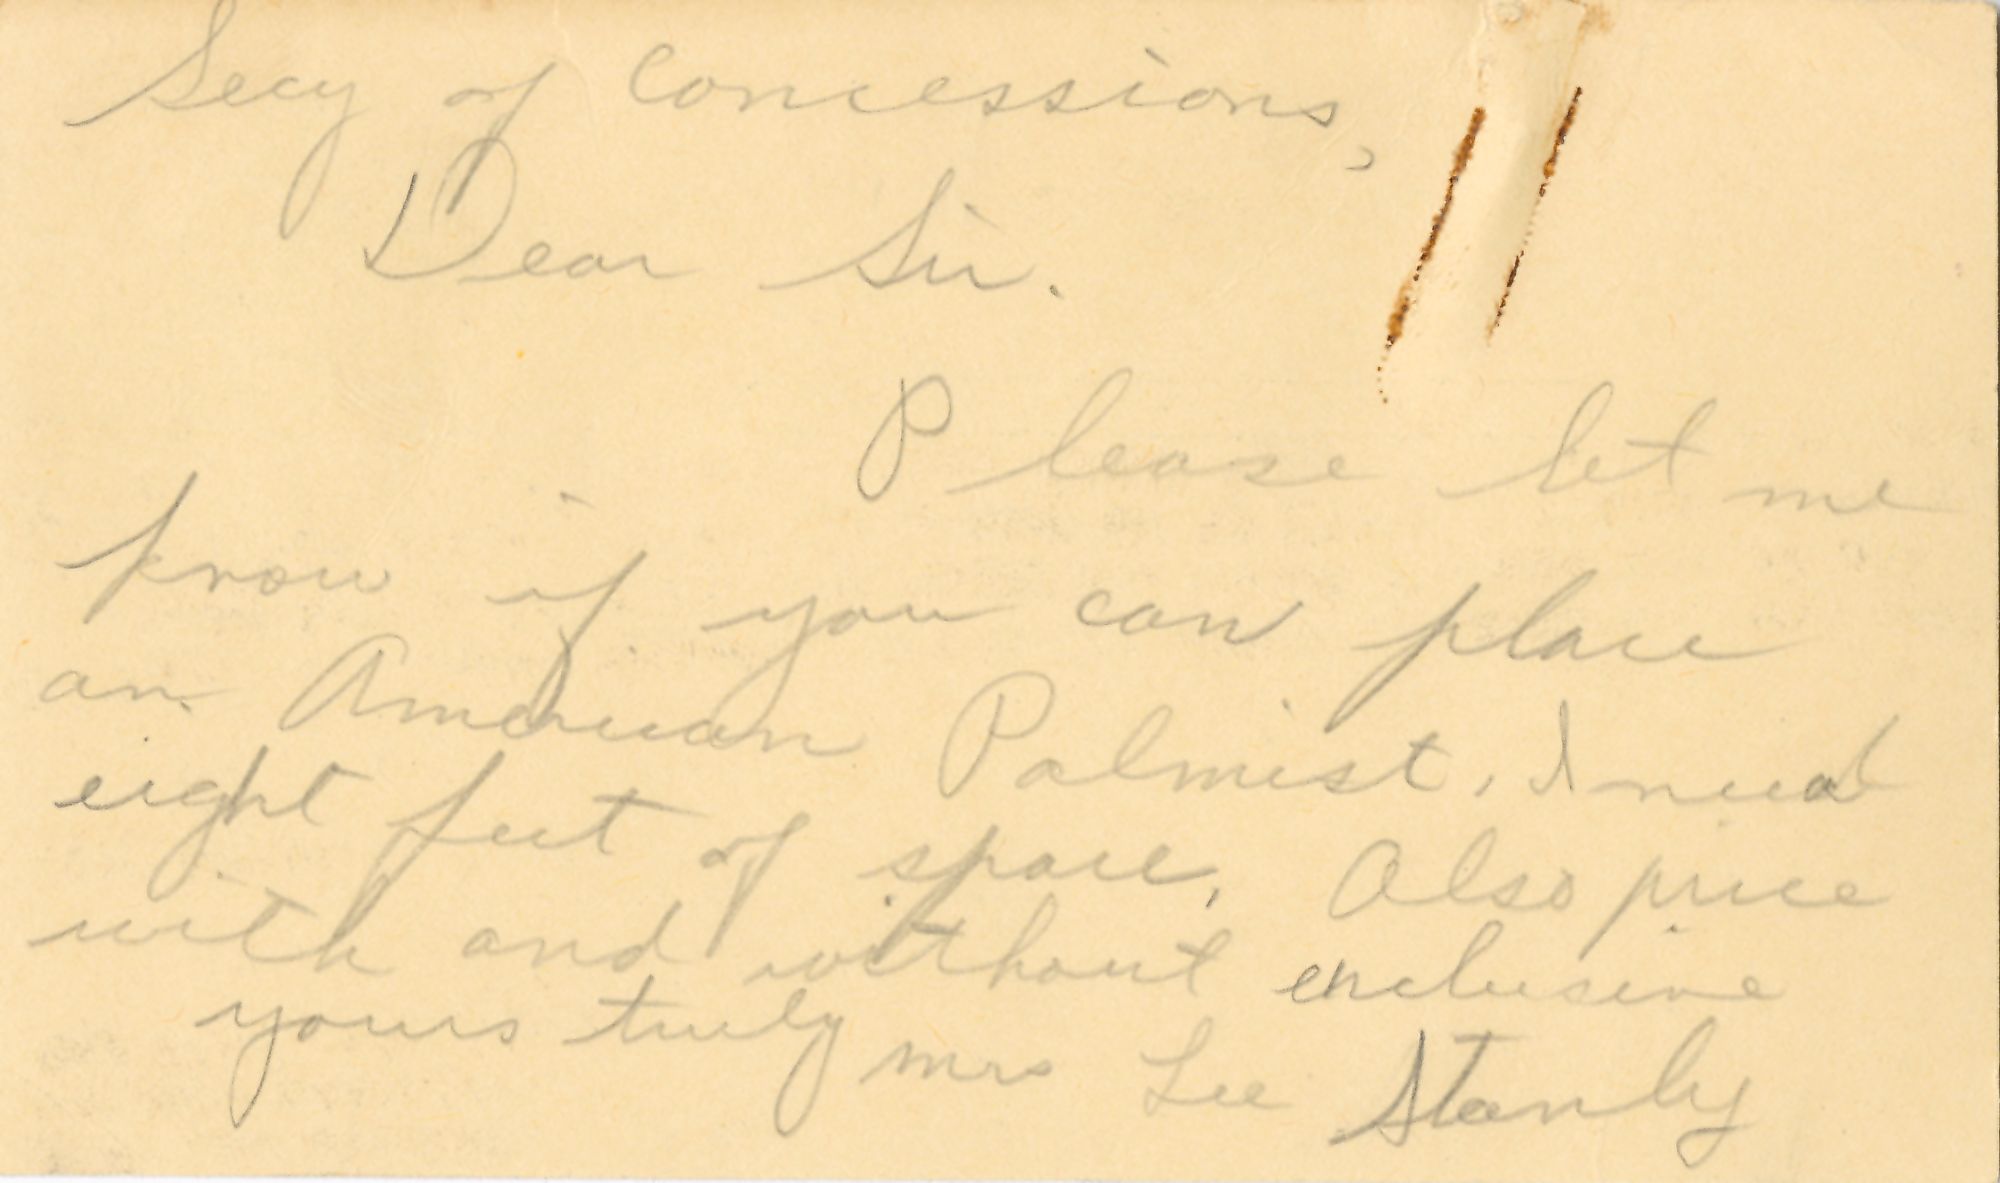 Secy of Concessions,
Dear Sir.
Please let me
know if you can place
an American Palmist, I need
eight feet of space, Also price
with and without exclusive
yours truly Mrs Lee Stanly